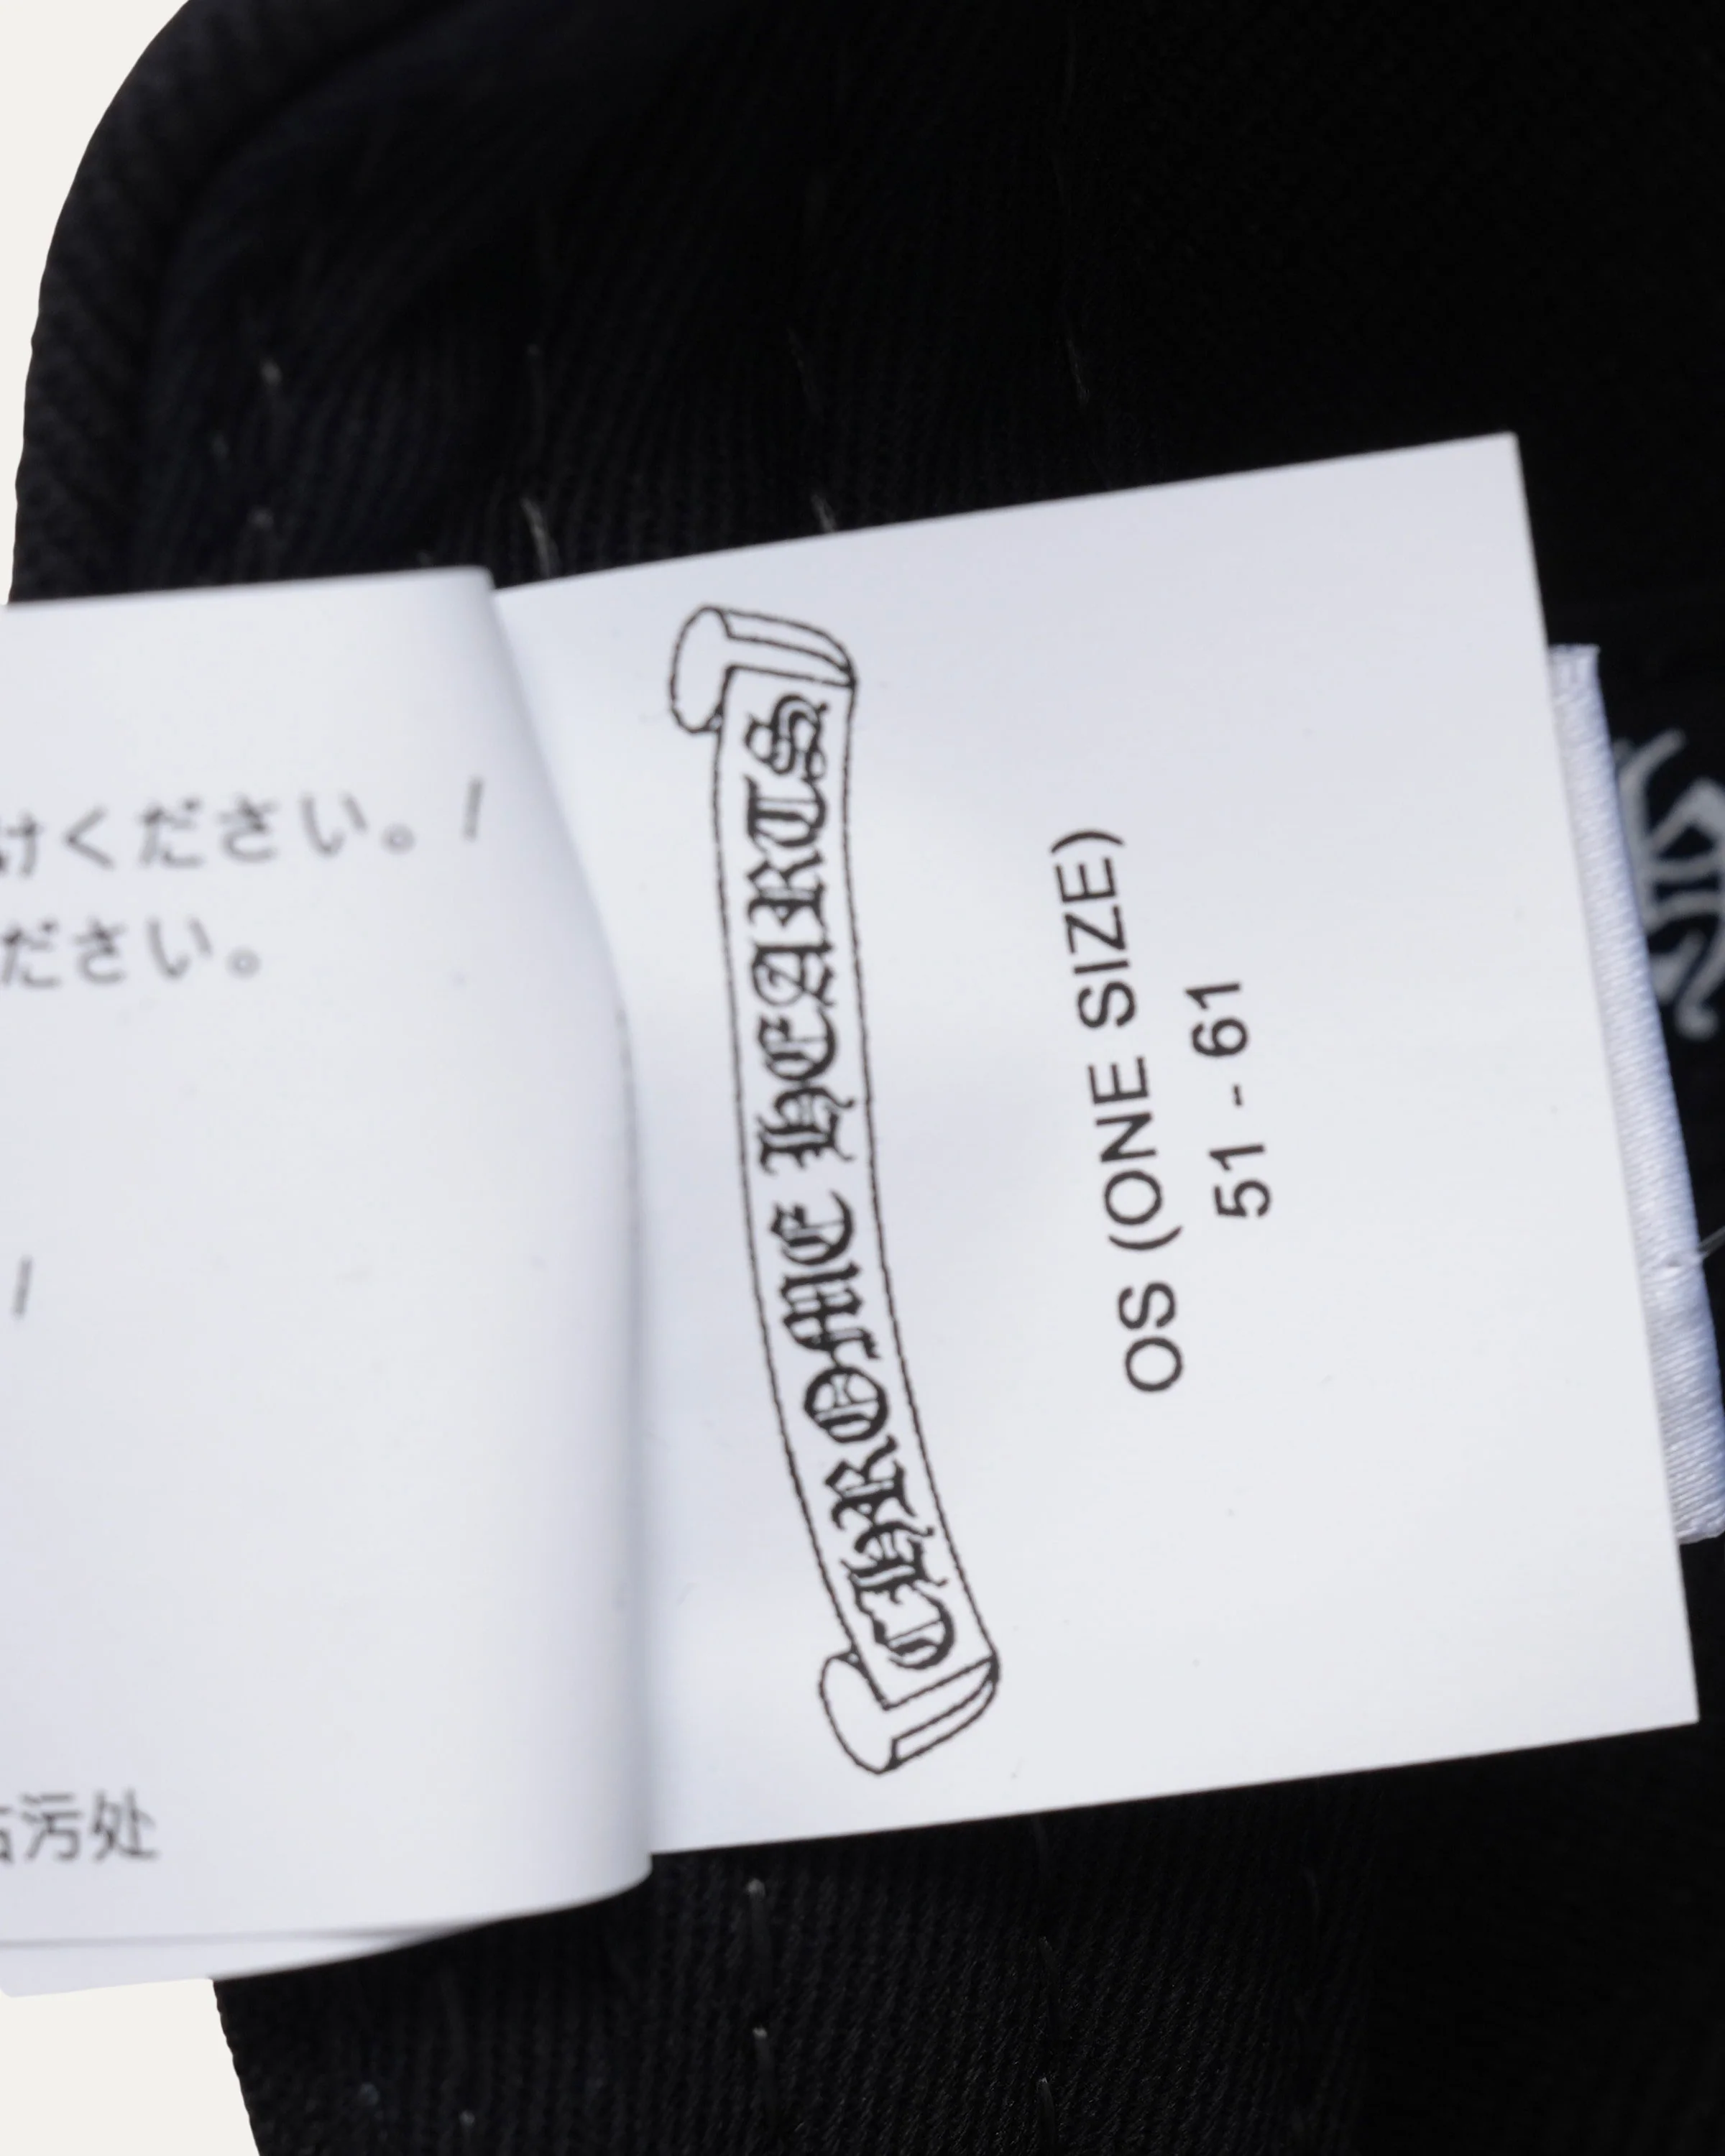 けください。/
ください。
/
污处
CHROME HEARTS
OS (ONE SIZE)
51 - 61